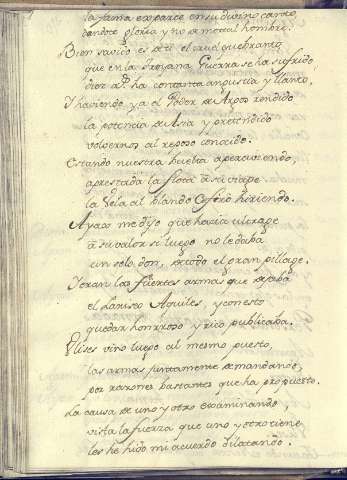 la fama exparce en su divino canto,
dandote gloria y no de mortal hombre.
Bien savido es de ti el cruel quebranto
que en la troyana Guerra se ha sufrido
diez aº ha con tanta angustia y llanto.
Y haviendo ya el Poder de Argos rendido
la potencia de Asia y pretendido
volvernos al reposo conocido.
Estando nuestra buelta aperciviendo,
aprestada la flota a su viage
la Vela al blando Cefiro hiriendo.
Ayax me dijo que hacia ultrage
a su valor si luego no le daba
un solo don, de todo el gran pillage.
Y eran las fuertes armas que dejaba
el Lariseo Aquiles, y con esto
quedar honrroso y rico publicaba.
Ulises vino luego al mesmo puesto,
las armas juntamente demandando,
por razones bastantes que ha propuesto.
La causa de uno y otro examinando,
vista la fuerza que uno y otro tiene
les he hido mi acuerdo dilatando.